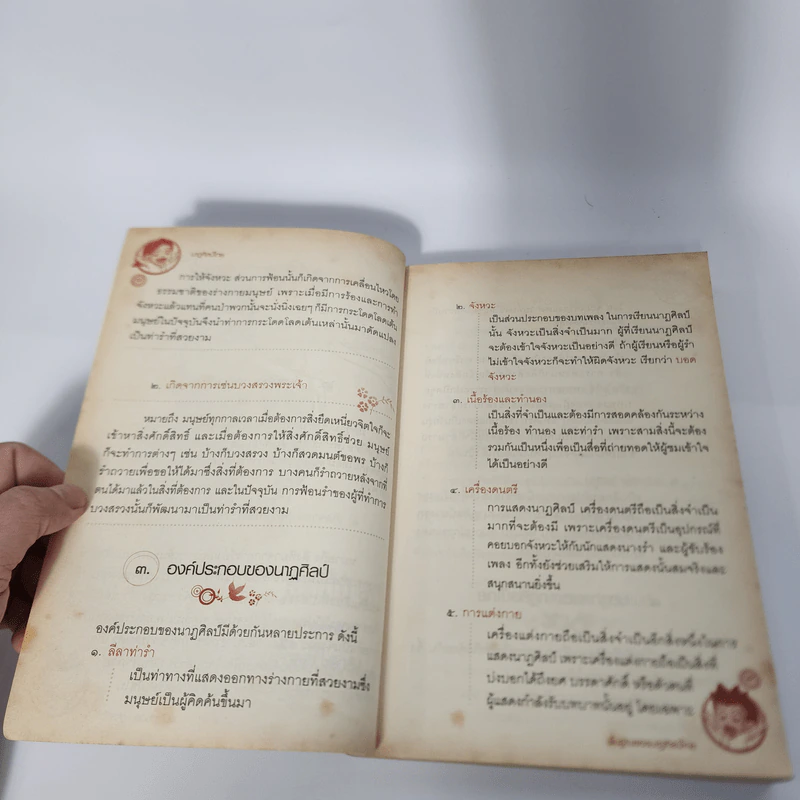 นาฏศิลป์ไทย
การให้จังหวะ ส่วนการฟ้อนนั้นก็เกิดจากการเคลื่อนไหวโดย
ธรรมชาติของร่างกายมนุษย์ เพราะเมื่อมีการร้องและการทำ
จังหวะแล้วแทนที่คนป่าพวกนั้นจะนั่งนิ่งเฉยๆ ก็มีการกระโดดโลดเต้น
มนุษย์ในปัจจุบันจึงนำท่าการกระโดดโลดเต้นเหล่านั้นมาดัดแปลง
เป็นท่ารำที่สวยงาม
๒. เกิดจากการเซ่นบวงสรวงพระเจ้า
หมายถึง มนุษย์ทุกกาลเวลาเมื่อต้องการสิ่งยึดเหนี่ยวจิตใจก็จะ
เข้าหาสิ่งศักดิ์สิทธิ์ และเมื่อต้องการให้สิ่งศักดิ์สิทธิ์ช่วย มนุษย์
ก็จะทำการต่างๆ เช่น บ้างก็บวงสรวง บ้างก็สวดมนต์ขอพร บ้างก็
รำถวายเพื่อขอให้ได้มาซึ่งสิ่งที่ต้องการ บางคนก็รำถวายหลังจากที่
ตนได้มาแล้วในสิ่งที่ต้องการ และในปัจจุบัน การฟ้อนรำของผู้ที่ทำการ
บวงสรวงนั้นก็พัฒนามาเป็นท่ารำที่สวยงาม
๓. องค์ประกอบของนาฏศิลป์
องค์ประกอบของนาฏศิลป์มีด้วยกันหลายประการ ดังนี้
๑. ลีลาท่ารำ
เป็นท่าทางที่แสดงออกทางร่างกายที่สวยงามซึ่ง
มนุษย์เป็นผู้คิดค้นขึ้นมา
๒. จังหวะ
เป็นส่วนประกอบของบทเพลง ในการเรียนนาฏศิลป์
นั้น จังหวะเป็นสิ่งจำเป็นมาก ผู้ที่เรียนนาฏศิลป์
จะต้องเข้าใจจังหวะเป็นอย่างดี ถ้าผู้เรียนหรือผู้รำ
ไม่เข้าใจจังหวะก็จะทำให้ผิดจังหวะ เรียกว่า บอด
จังหวะ
๓. เนื้อร้องและทำนอง
เป็นสิ่งที่จำเป็นและต้องมีการสอดคล้องกันระหว่าง
เนื้อร้อง ทำนอง และท่ารำ เพราะสามสิ่งนี้จะต้อง
รวมกันเป็นหนึ่งเพื่อเป็นสื่อที่ถ่ายทอดให้ผู้ชมเข้าใจ
ได้เป็นอย่างดี
๔. เครื่องดนตรี
การแสดงนาฏศิลป์ เครื่องดนตรีถือเป็นสิ่งจำเป็น
มากที่จะต้องมี เพราะเครื่องดนตรีเป็นอุปกรณ์ที่
คอยบอกจังหวะให้กับนักแสดงนางรำ และผู้ขับร้อง
เพลง อีกทั้งยังช่วยเสริมให้การแสดงนั้นสมจริงและ
สนุกสนานยิ่งขึ้น
๕. การแต่งกาย
เครื่องแต่งกายถือเป็นสิ่งจำเป็นอีกสิ่งหนึ่งในการ
แสดงนาฏศิลป์ เพราะเครื่องแต่งกายถือเป็นสิ่งที่
บ่งบอกได้ถึงยศ บรรดาศักดิ์ หรือตัวตนที่
ผู้แสดงกำลังรับบทบาทนั้นอยู่ โดยเฉพาะ